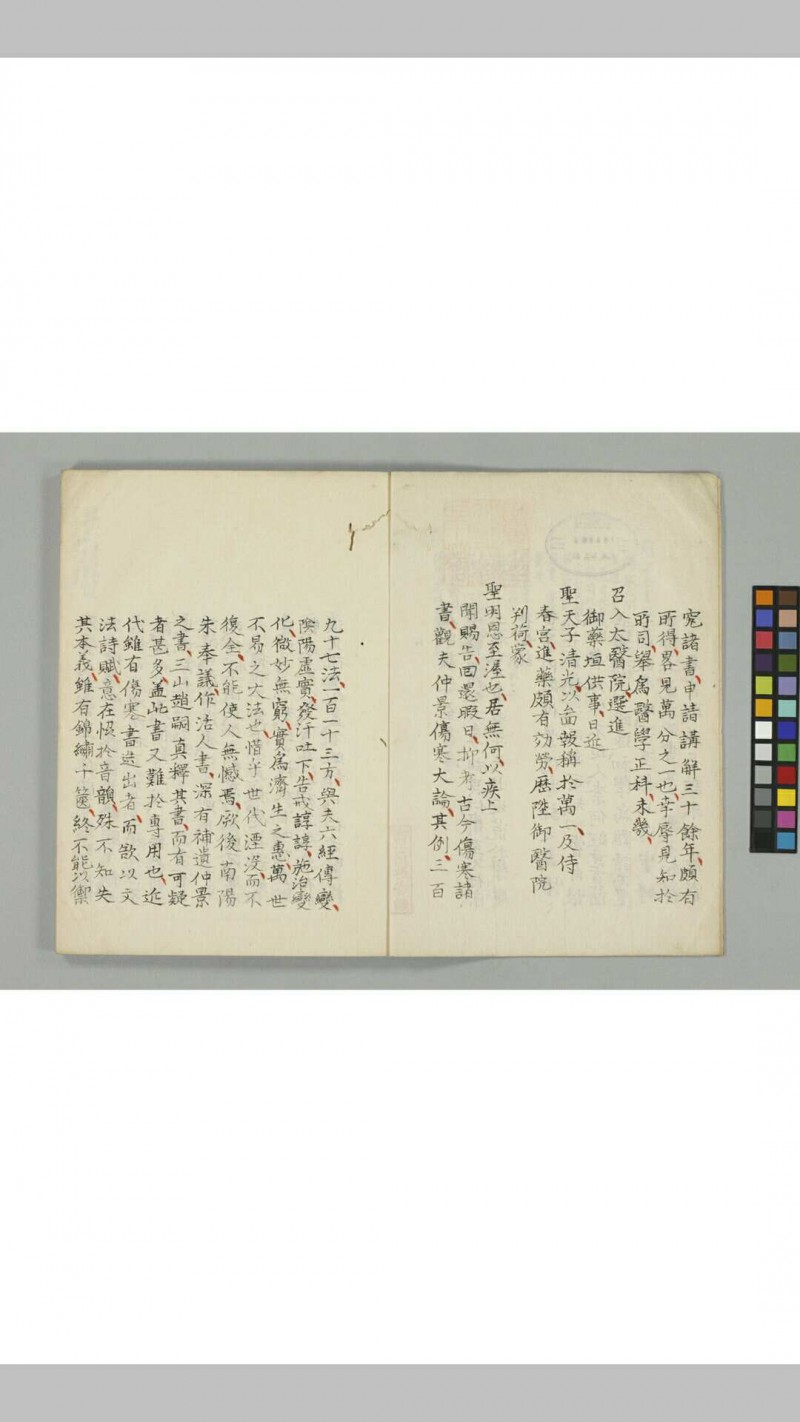 究諸書、申請講解三十餘年、頗有
所得、畧見萬分之一也、幸辱見知於
所司、舉為醫學正科、未幾、
召入太醫院、選進
御藥垣供事、日近
聖天子清光、以啚報稱於萬一、及侍
春宮、進藥頗有効勞、歷陞御醫院
判荷蒙
聖明恩至渥也、居無何、以疾上
聞賜告回還暇日、抑考古今傷寒諸
書、觀夫仲景傷寒大論、其例、三百
九十七法、一百一十三方、與夫六經傳變、
陰陽虛實、發汗吐下、告戒諄諄、施治變
化、微妙無窮、實為濟生之惠、萬世
不易之大法也、惜乎世代湮沒、而不
復全、不能使人無憾焉、厥後南陽
朱奉議、作活人書、深有補遺仲景
之書、三山趙嗣真釋其書、而有可疑
者甚多、盖此書又難於專用也、近
代雖有傷寒書迭出者、而歆以文
法詩賦、意在悞於音韻、殊不知失
其本義、雖有錦繡千篋、終不能以禦